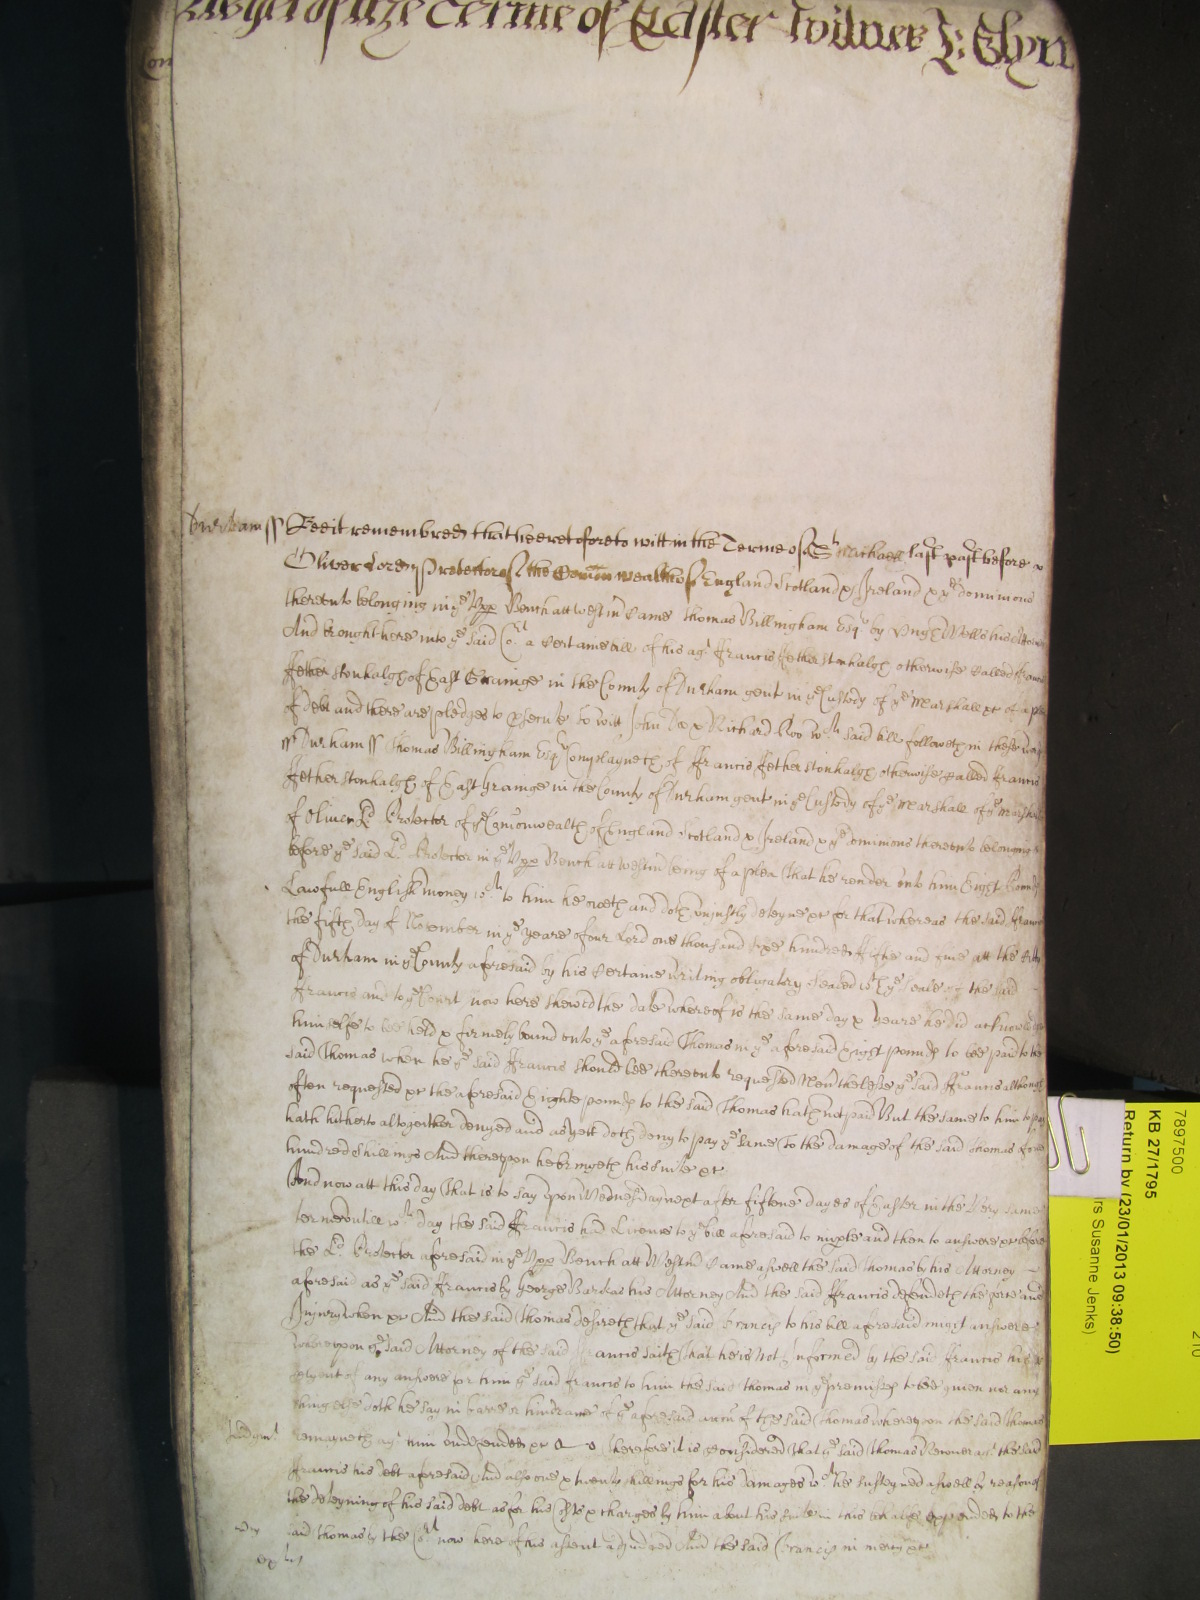 of the Terme of Easter Witnes J: Glyn
Con
Durham ss Bee it remembred that heeretofore to witt in the Terme of St Michael last past before
Oliver Lord Protector of the Comon wealth of England Scotland & Ireland & ye dominions
thereunto belonging in ye Vpp Bench att Westm Came Thomas Billingham Esqr by Hugh Wells his Attorney
And brought here into ye said Cort a Certaine bill of his agt Francis Fetherstonhalgh otherwise Called Francis
Fetherstonhalgh of East Grainge in the County of Durham gent in ye Custody of ye Marshall &c of a plea
of debt and there are pledges to psecute to witt John Doe & Richard Roo wch said bill followeth in these words
ss Durham ss Thomas Billingham Esqr Complayneth of Francis Fetherstonhalgh otherwise Called Francis
Fetherstonhalgh of East Grainge in the County of Durham gent in ye Custody of ye Marshall of ye Marshalsea
of Oliver Ld Protector of ye Comonwealth of England Scotland & Ireland & ye dominions thereunto belonging
before ye said Ld Protector in ye Vpp Bench att Westm being of a plea that he render vnto him Eight Pounds
Lawfull English money wch to him he oweth and doth vniustly deteyne &c for that whereas the said Francis
the fifth day of November in ye yeare of our Lord one thousand sixe hundred fiftie and five att the Citty
of Durham in ye County aforesaid by his Certaine writing obligatory Sealed wth ye Seale of the said
Francis and to ye Court now here shewed the date whereof is the same day & yeare he did acknowledge
himselfe to be held & firmely bound vnto ye aforesaid Thomas in ye aforesaid Eight pounds to bee paid to the
said Thomas when he ye said Francis should bee therevnto requested Neverthelesse ye said Francis although
often requested &c the aforesaid Eighte pounds to the said Thomas hath not paid But the same to him to pay
hath hitherto altogeither denyed and as yett doth deny to pay ye same To the damage of the said Thomas
hundred shillings And therevpon he bringeth his suite &c
And now att this day That is to say vpon Wednesday next after fifteene dayes of Easter in this very same
terme vntill wch day the said Francis had License to ye bill aforesaid to imparle and then to answere &c before
the Ld Protector aforesaid in ye Vpp Bench att Westm Came aswell the said Thomas by his Attorney
aforesaid as ye said Francis by George Barkas his Attorney And the said Francis defendeth the force and
Iniury when &c And the said Thomas desireth that ye said Francis to his bill aforesaid might answere
wherevpon ye said Attorney of the said Francis saith that he is not Informed by the said Francis his
of any answere for him ye said Francis to him the said Thomas in ye premisses to be given nor any
thing else doth he say in barre or hindrance of ye aforesaid accon of the said Thomas wherevpon the said Thomas
Judgmt remayneth agt him vndefended &c Therefore it is Considered that ye said Thomas Recouer agt the said
Francis his debt aforesaid And also one & twenty shillings for his damages wch he susteyned aswell by reason of
the deteyning of his said debt as for his Costs & charges by him about his suite in this behalfe expended to the
said Thomas by the Cort now here of his assent adiudged And the said Francis in mercy &c
7897500
KB 27/1795
Return by (23/01/2013 09:38:50)
rs Susanne Jenks)